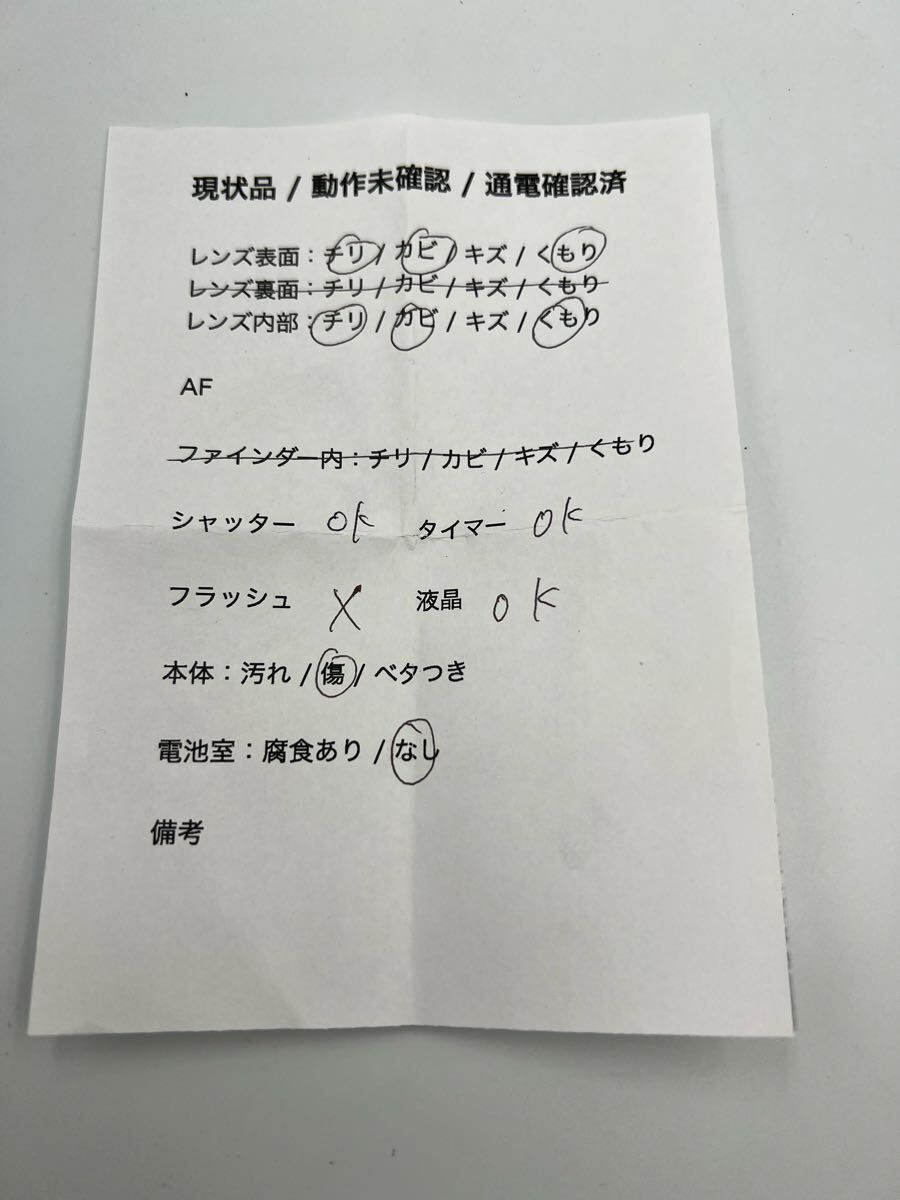 現状品 / 動作未確認 / 通電確認済
レンズ表面：チリ / カビ / キズ / くもり
レンズ裏面：チリ / カビ / キズ / くもり
レンズ内部：チリ / カビ / キズ / くもり
AF
ファインダー内：チリ / カビ / キズ / くもり
シャッター OK タイマー OK
フラッシュ X 液晶 OK
本体：汚れ / 傷 / ベタつき
電池室：腐食あり / なし
備考